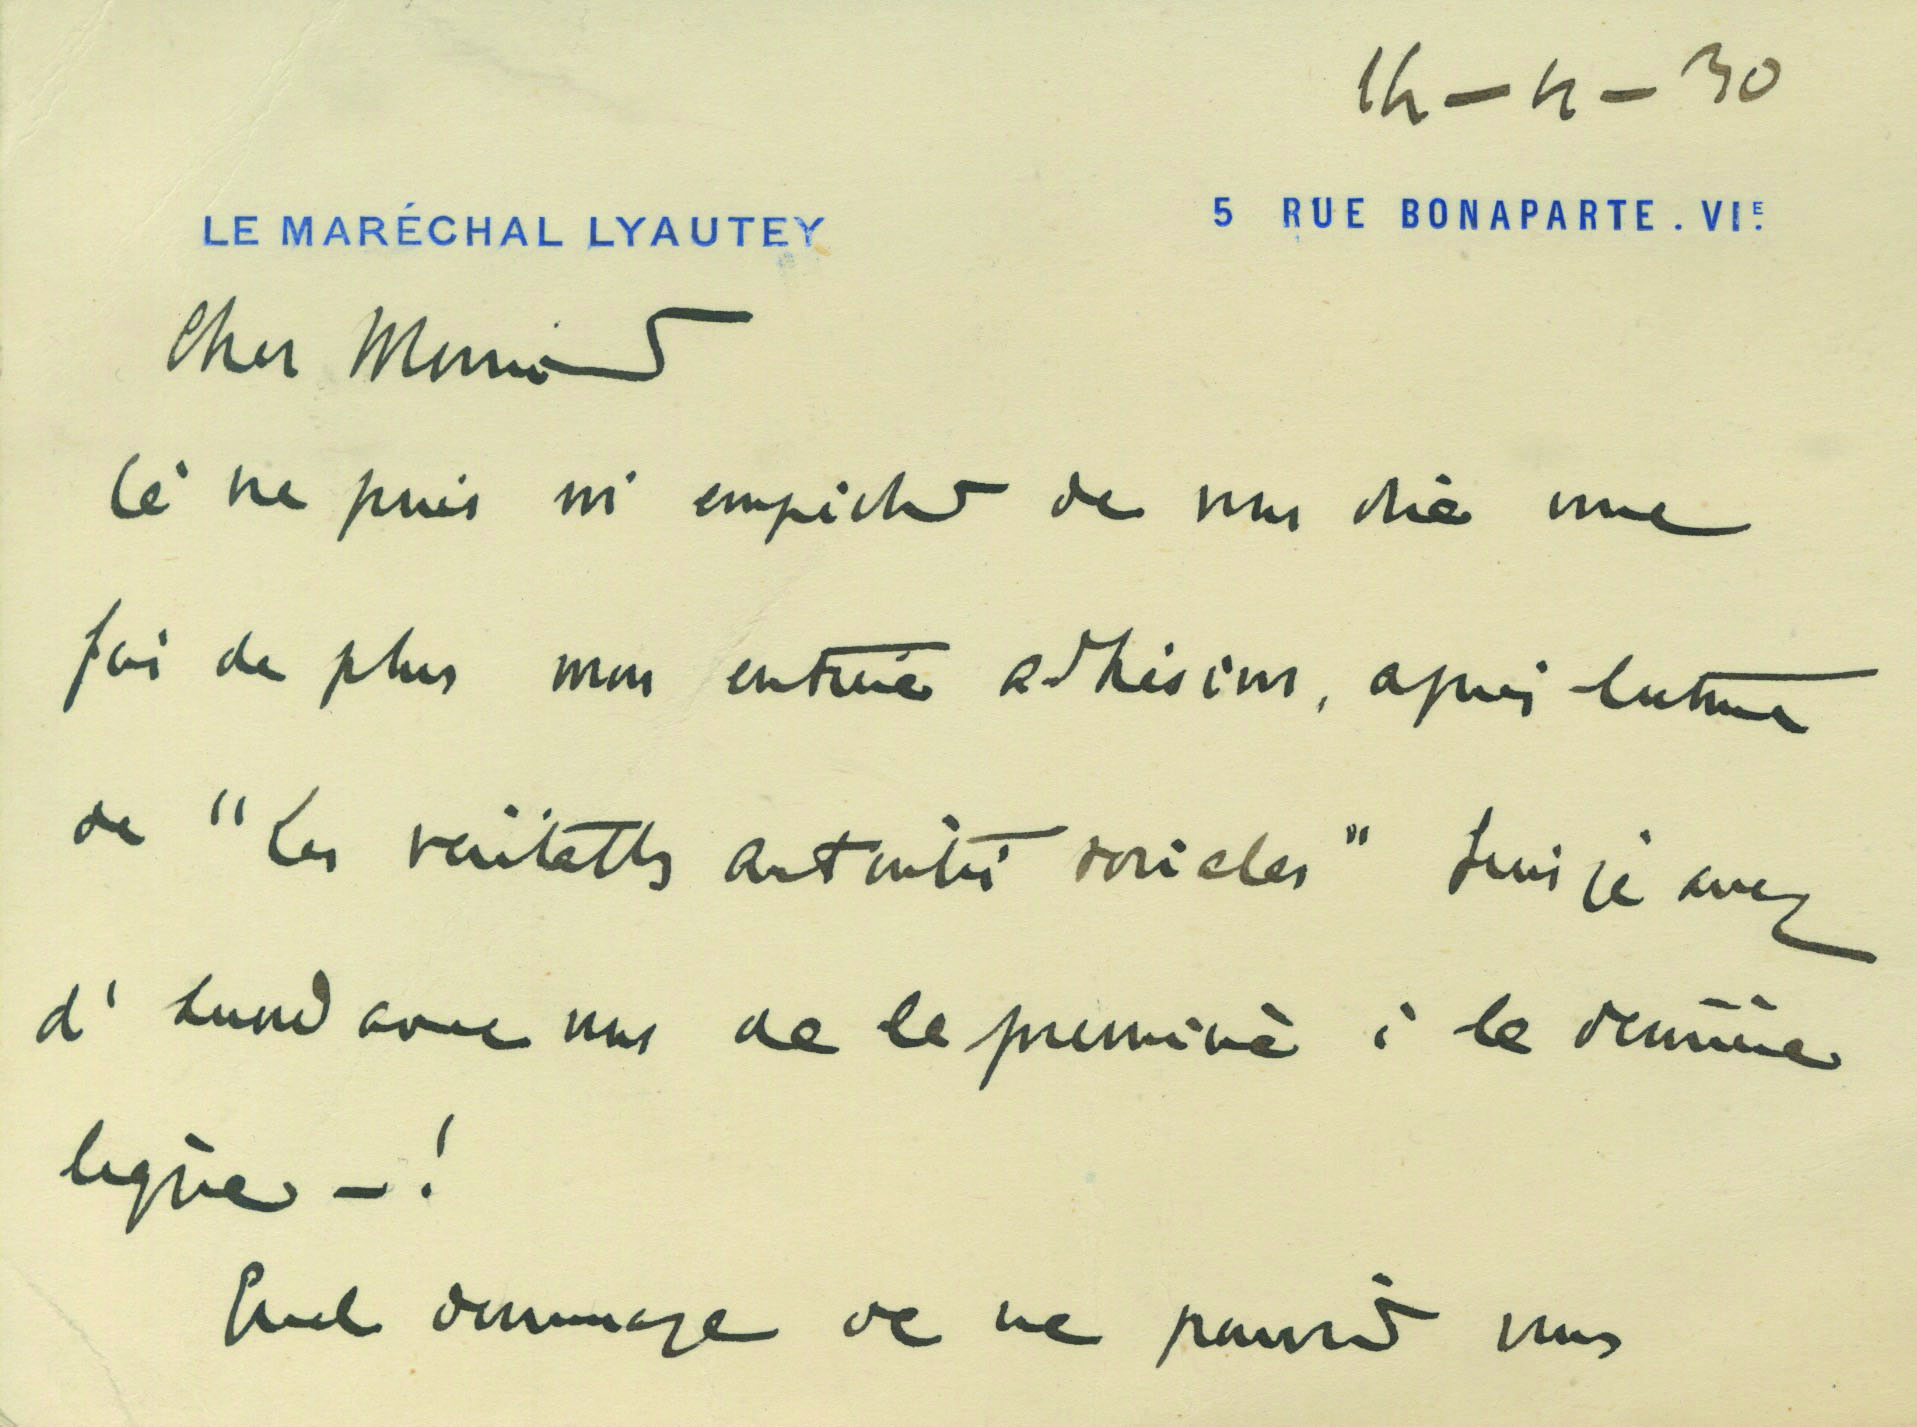 14 - 4 - 30
LE MARÉCHAL LYAUTEY
5 RUE BONAPARTE . VIE.
Cher Monsieur
Je ne puis m'empêcher de vous dire une
fois de plus mon entière adhésion, après lecture
de "Les véritables autorités sociales" Suis je assez
d'accord avec vous de la première à la dernière
ligne - !
Quel dommage de ne pouvoir vous